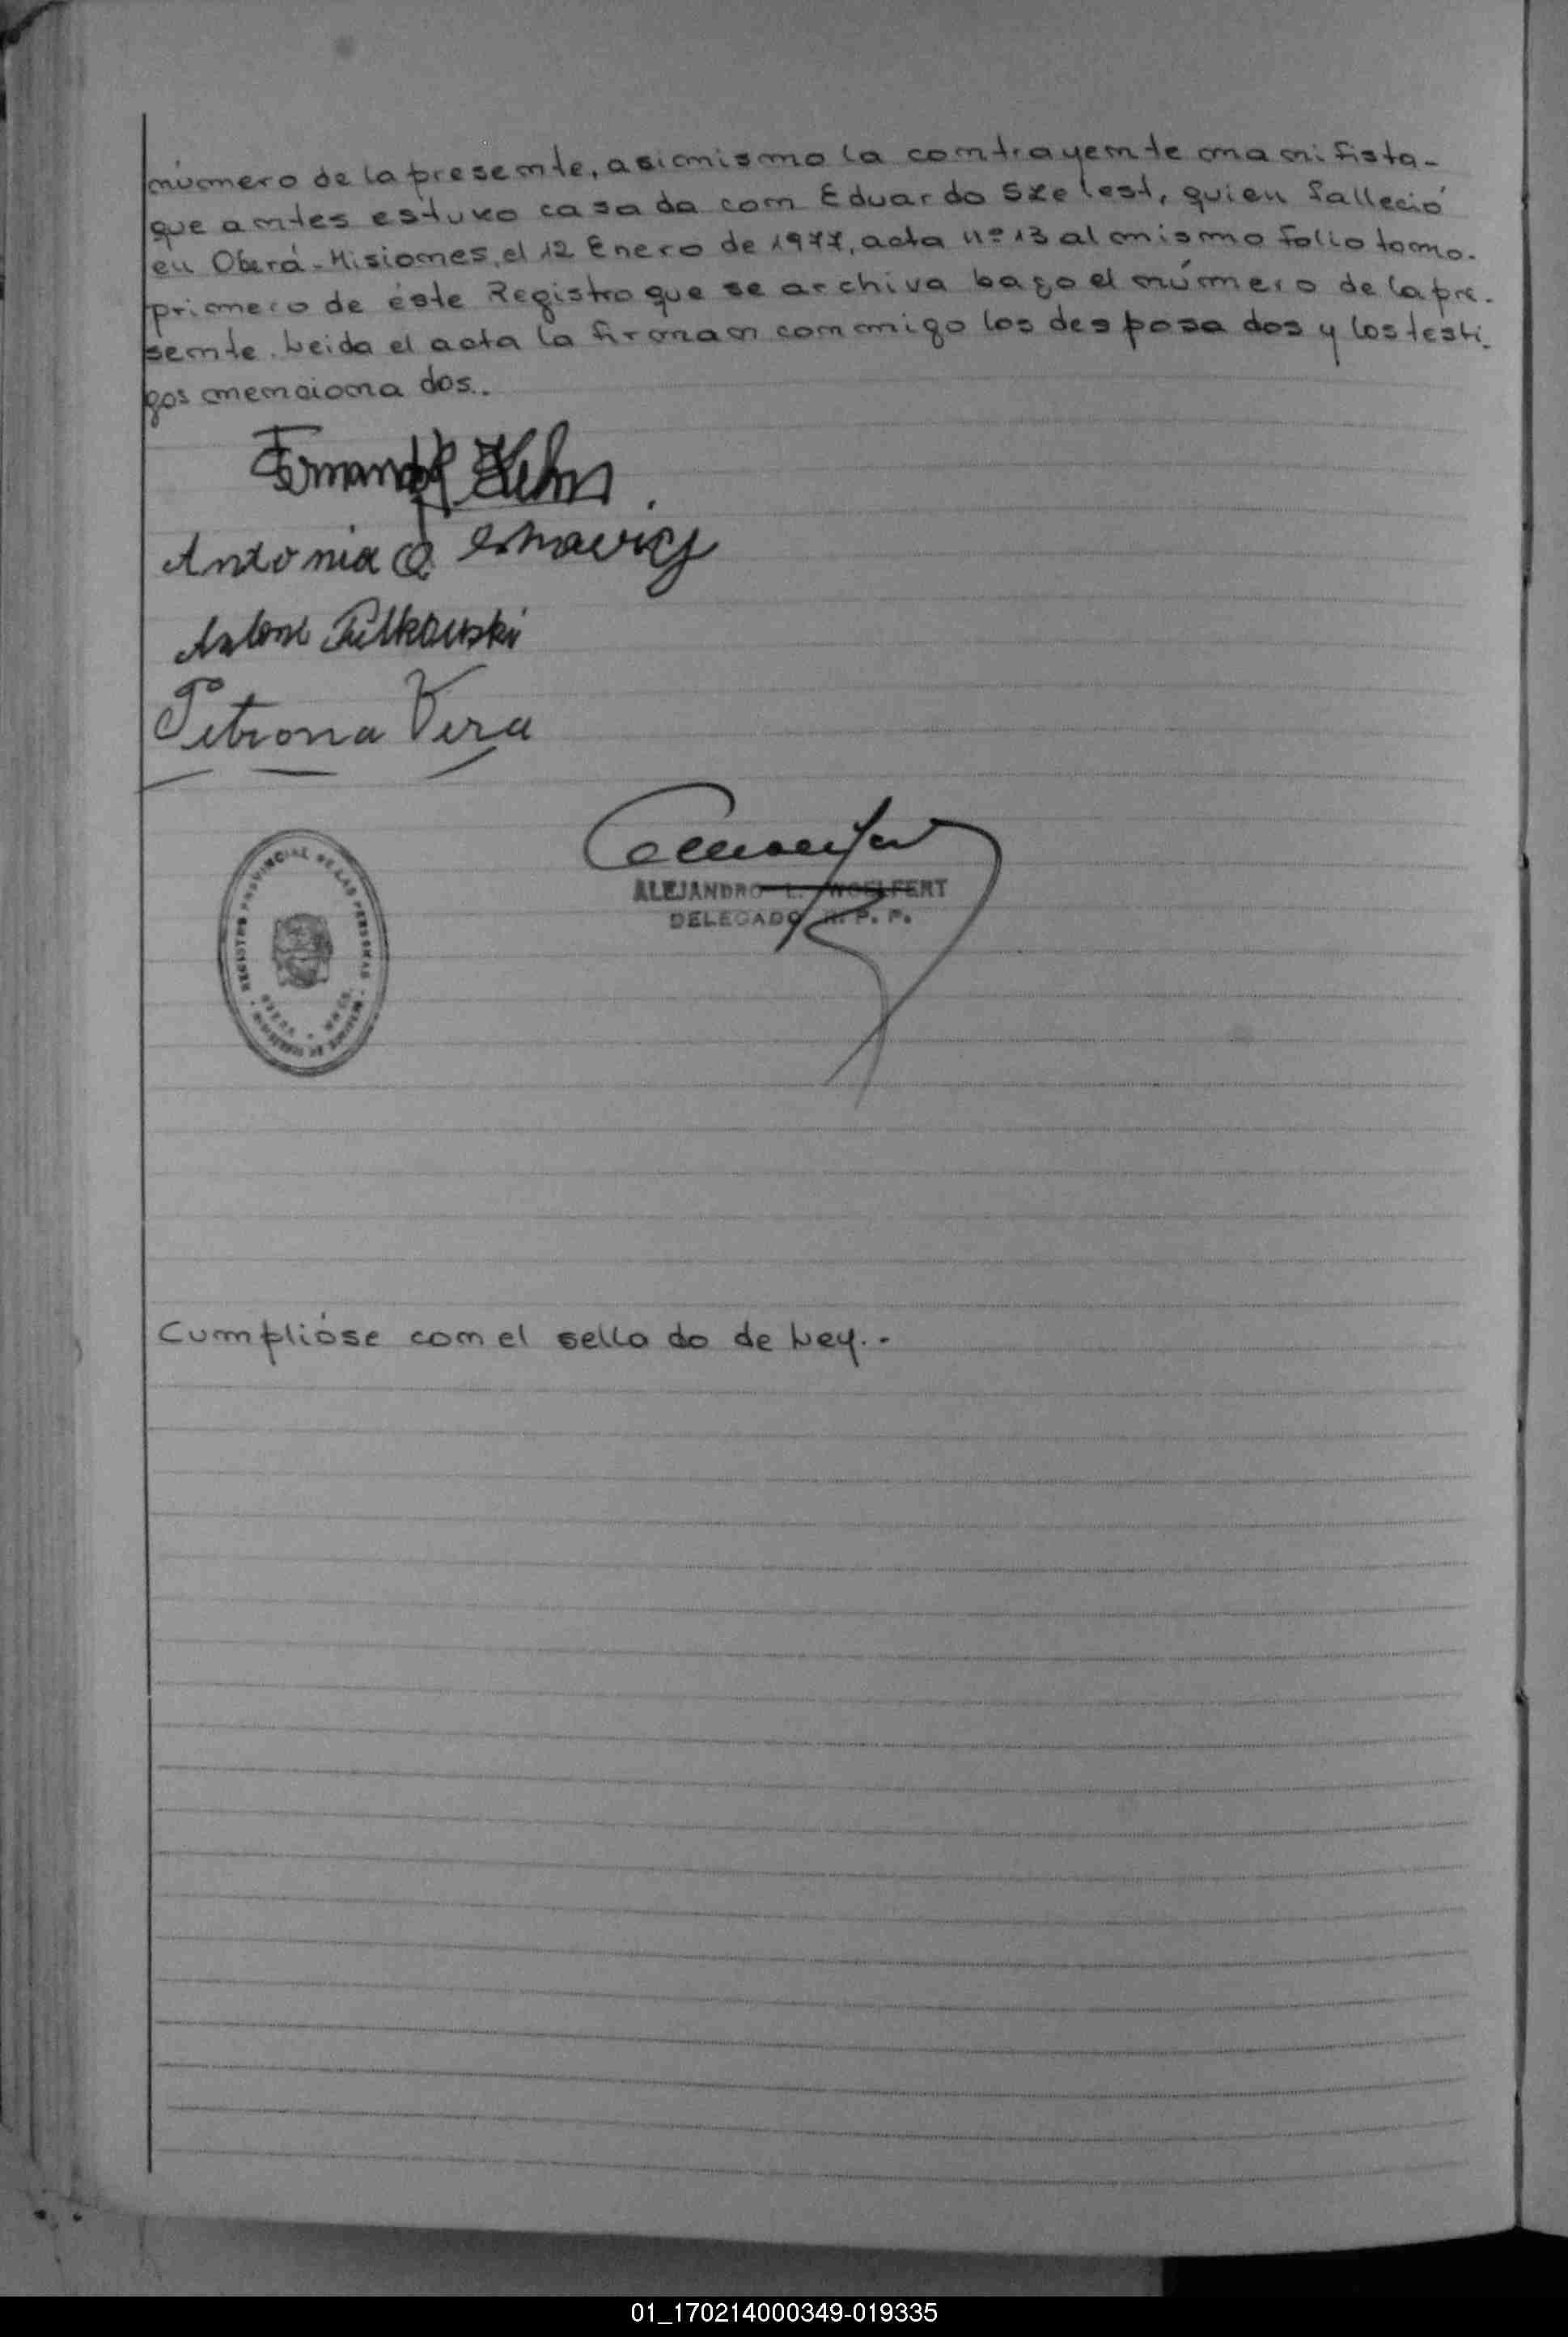 número de la presente, asimismo la contrayente manifista-
que antes estuvo casada con Eduardo Szelest, quien falleció
en Oberá - Misiones, el 12 Enero de 1977, acta nº 13 al mismo folio tomo.
primero de éste Registro que se archiva bajo el número de la pre-
sente. Leida el acta la firman conmigo los desposados y los testi-
gos mencionados..
Antonia
Petrona Vera
ALEJANDRO L. WOELFERT
DELEGADO R. P. P.
REGISTRO PROVINCIAL DE LAS PERSONAS
Cumplióse con el sellado de Ley.-
01_170214000349-019335